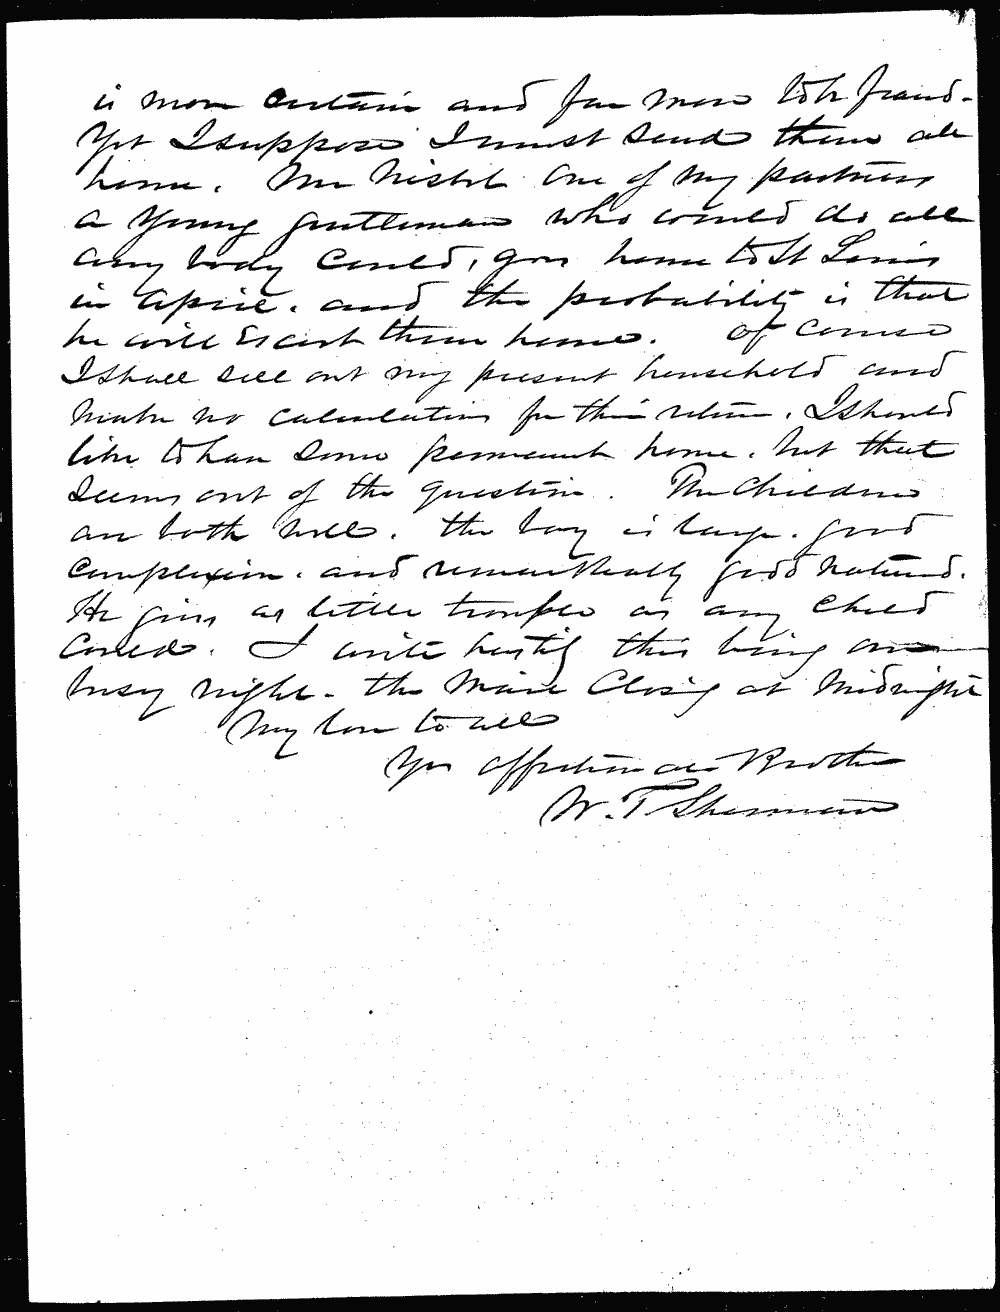 is more certain and far more to be feared.
Yet I suppose I must send them all
home. Mr Nisbet one of my partners
a young gentleman who would do all
any body could, goes home to St Louis
in April. and the probability is that
he will escort them home. Of course
I shall sell out my present household and
make no calculations for their return. I should
like to have some permanent home. but that
seems out of the question. The Children
are both well. the boy is large. good
complexion. and remarkably good natured.
He gives as little trouble as any child
could. I write hastily this being our
busy night - the Mail Closing at Midnight
My love to all
Yr affectionate Brother
W. T. Sherman